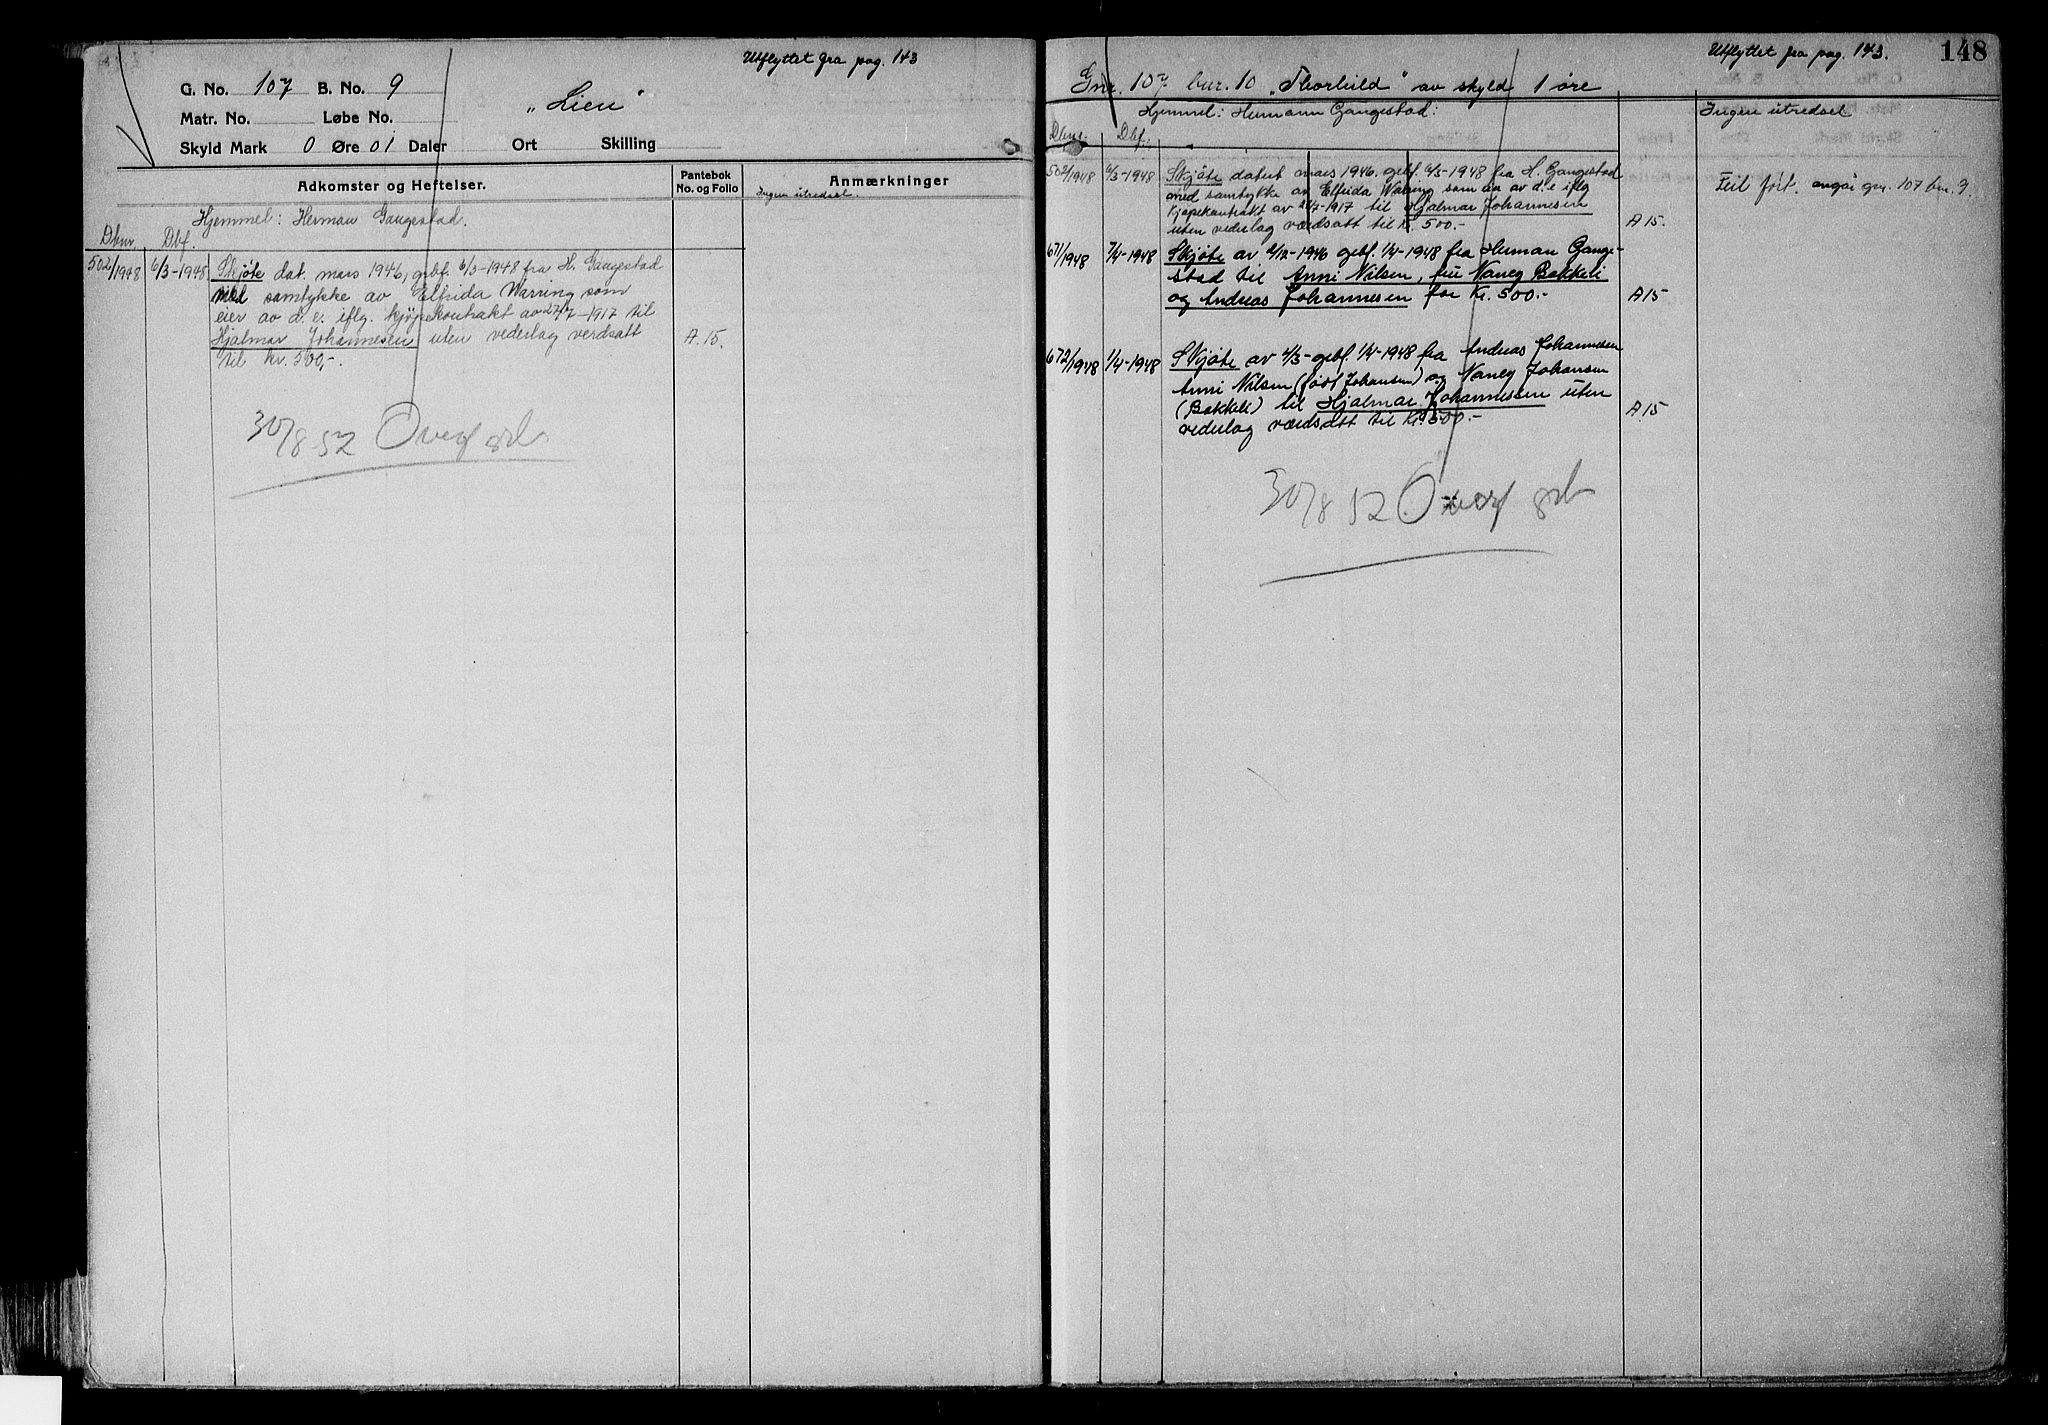 Utflyttet fra pag. 143
G. No. 107 B. No. 9
„Lien"
Matr. No. Løbe No.
Skyld Mark 0 Øre 01 Daler Ort Skilling
Adkomster og Heftelser.
Pantebok
No. og Folio
Anmærkninger
Ingen utredsel.
Hjemmel: Herman Gangestad.
Dbnr. Dbf.
502/1948 6/3-1948 Skjøte dat. mars 1946, gebf. 6/3-1948 fra H. Gangestad
med samtykke av Elfrida Warring som
eier av d. e. iflg. kjøpekontrakt av 27/7-1917 til
Hjalmar Johannesen uten vederlag verdsatt A. 15.
til kr. 500,-
30/8 52 Overf
Utflyttet fra pag. 143.
148
Gnr. 107 bnr. 10 „Thorhild" av skyld 1 øre
Hjemmel: Hermann Gangestad:
Ingen utredsel
Dbnr. Dbf.
502/1948 6/3-1948 Skjøte datert mars 1946. gebf. 6/3-1948 fra H. Gangestad
Feil ført. angår gnr. 107 bnr. 9.
med samtykke av Elfrida Warring som eier av d. e iflg
kjøpekontrakt av 27/7-1917 til Hjalmar Johannesen
uten vederlag værdsatt til kr. 500.- A 15.
671/1948 7/4-1948 Skjøte av 2/12-1946 gebf. 1/4-1948 fra Herman Gange-
stad til Anni Nilsen, fru Nancy Bakkeli
og Andreas Johannesen for Kr. 500.- A 15
672/1948 1/4-1948 Skjøte av 4/3- gebf. 1/4-1948 fra Andreas Johannesen
Anni Nilsen (født Johansen) og Nancy Johansen
(Bakkeli) til Hjalmar Johannessen uten A 15
vederlag værdsatt til Kr. 500.-
30/8 52 Overf